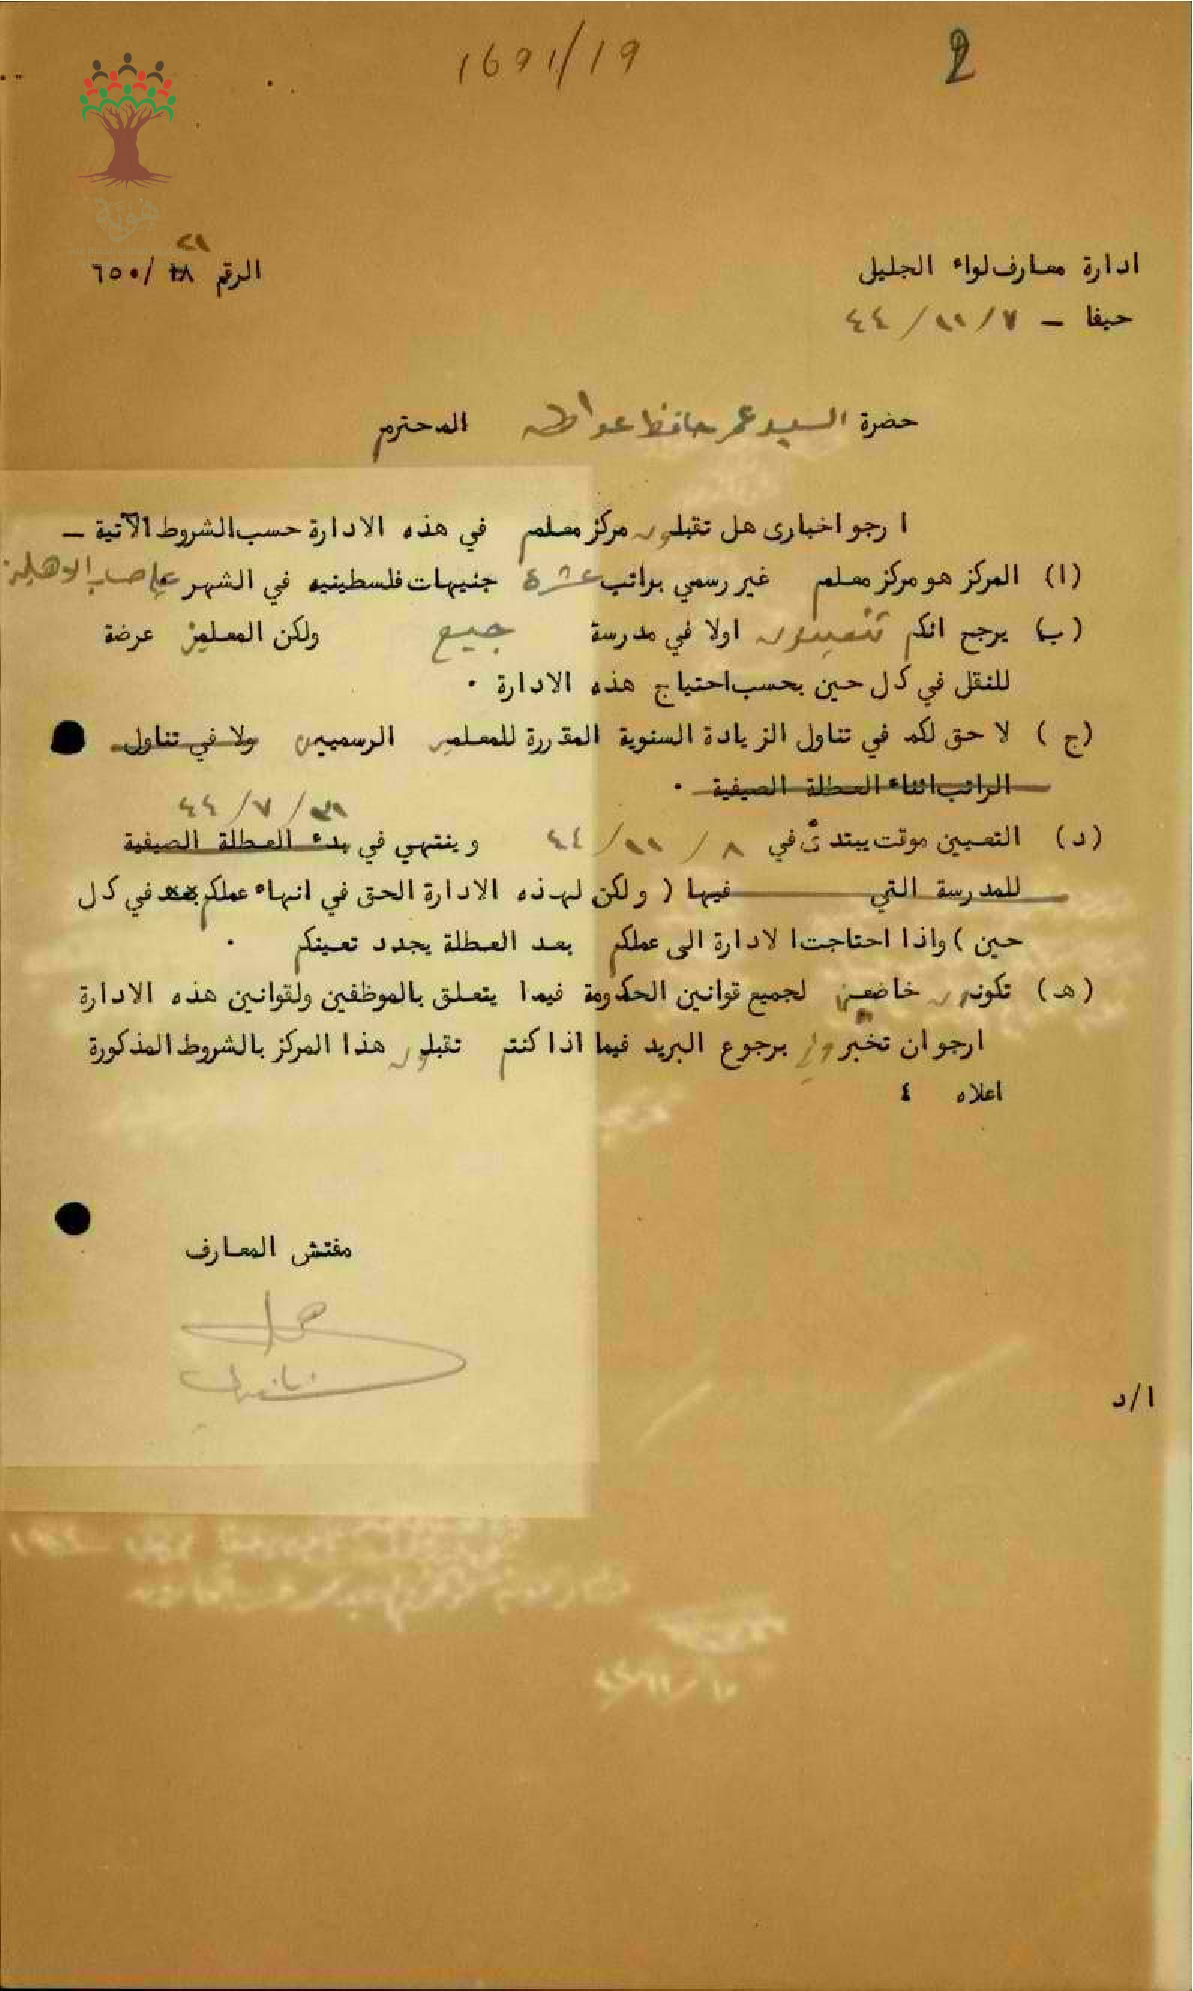 1691/19
2
هوية
ادارة معارف لواء الجليل
الرقم ٢١ ١٨/٦٥٠
حيفا - ٧/ ١١/ ٤٤
حضرة السيد عمر حافظ المحترم
ارجو اخباري هل تقبلون مركز معلم في هذه الادارة حسب الشروط الآتية -
(ا) المركز هو مركز معلم غير رسمي براتب عشرة جنيهات فلسطينيه في الشهر على حساب الاهلية
(ب) يرجح انكم تتعينون اولا في مدرسة جبع ولكن المعلمين عرضة
للنقل في كل حين بحسب احتياج هذه الادارة .
(ج) لا حق لكم في تناول الزيادة السنوية المقررة للمعلمين الرسميين ولا في تناول
الراتب اثناء العطلة الصيفية .
٣١/ ٧/ ٤٤
(د) التعيين موقت يبتدئ في ٨ / ١١/ ٤٤ وينتهي في بدء العطلة الصيفية
للمدرسة التي فيها ( ولكن لهذه الادارة الحق في انهاء عملكم في كل
حين ) واذا احتاجت الادارة الى عملكم بعد العطلة يجدد تعينكم .
(هـ) تكونون خاضعين لجميع قوانين الحكومة فيما يتعلق بالموظفين ولقوانين هذه الادارة
ارجو ان تخبروني برجوع البريد فيما اذا كنتم تقبلون هذا المركز بالشروط المذكورة
اعلاه ٤
مفتش المعارف
ا/د